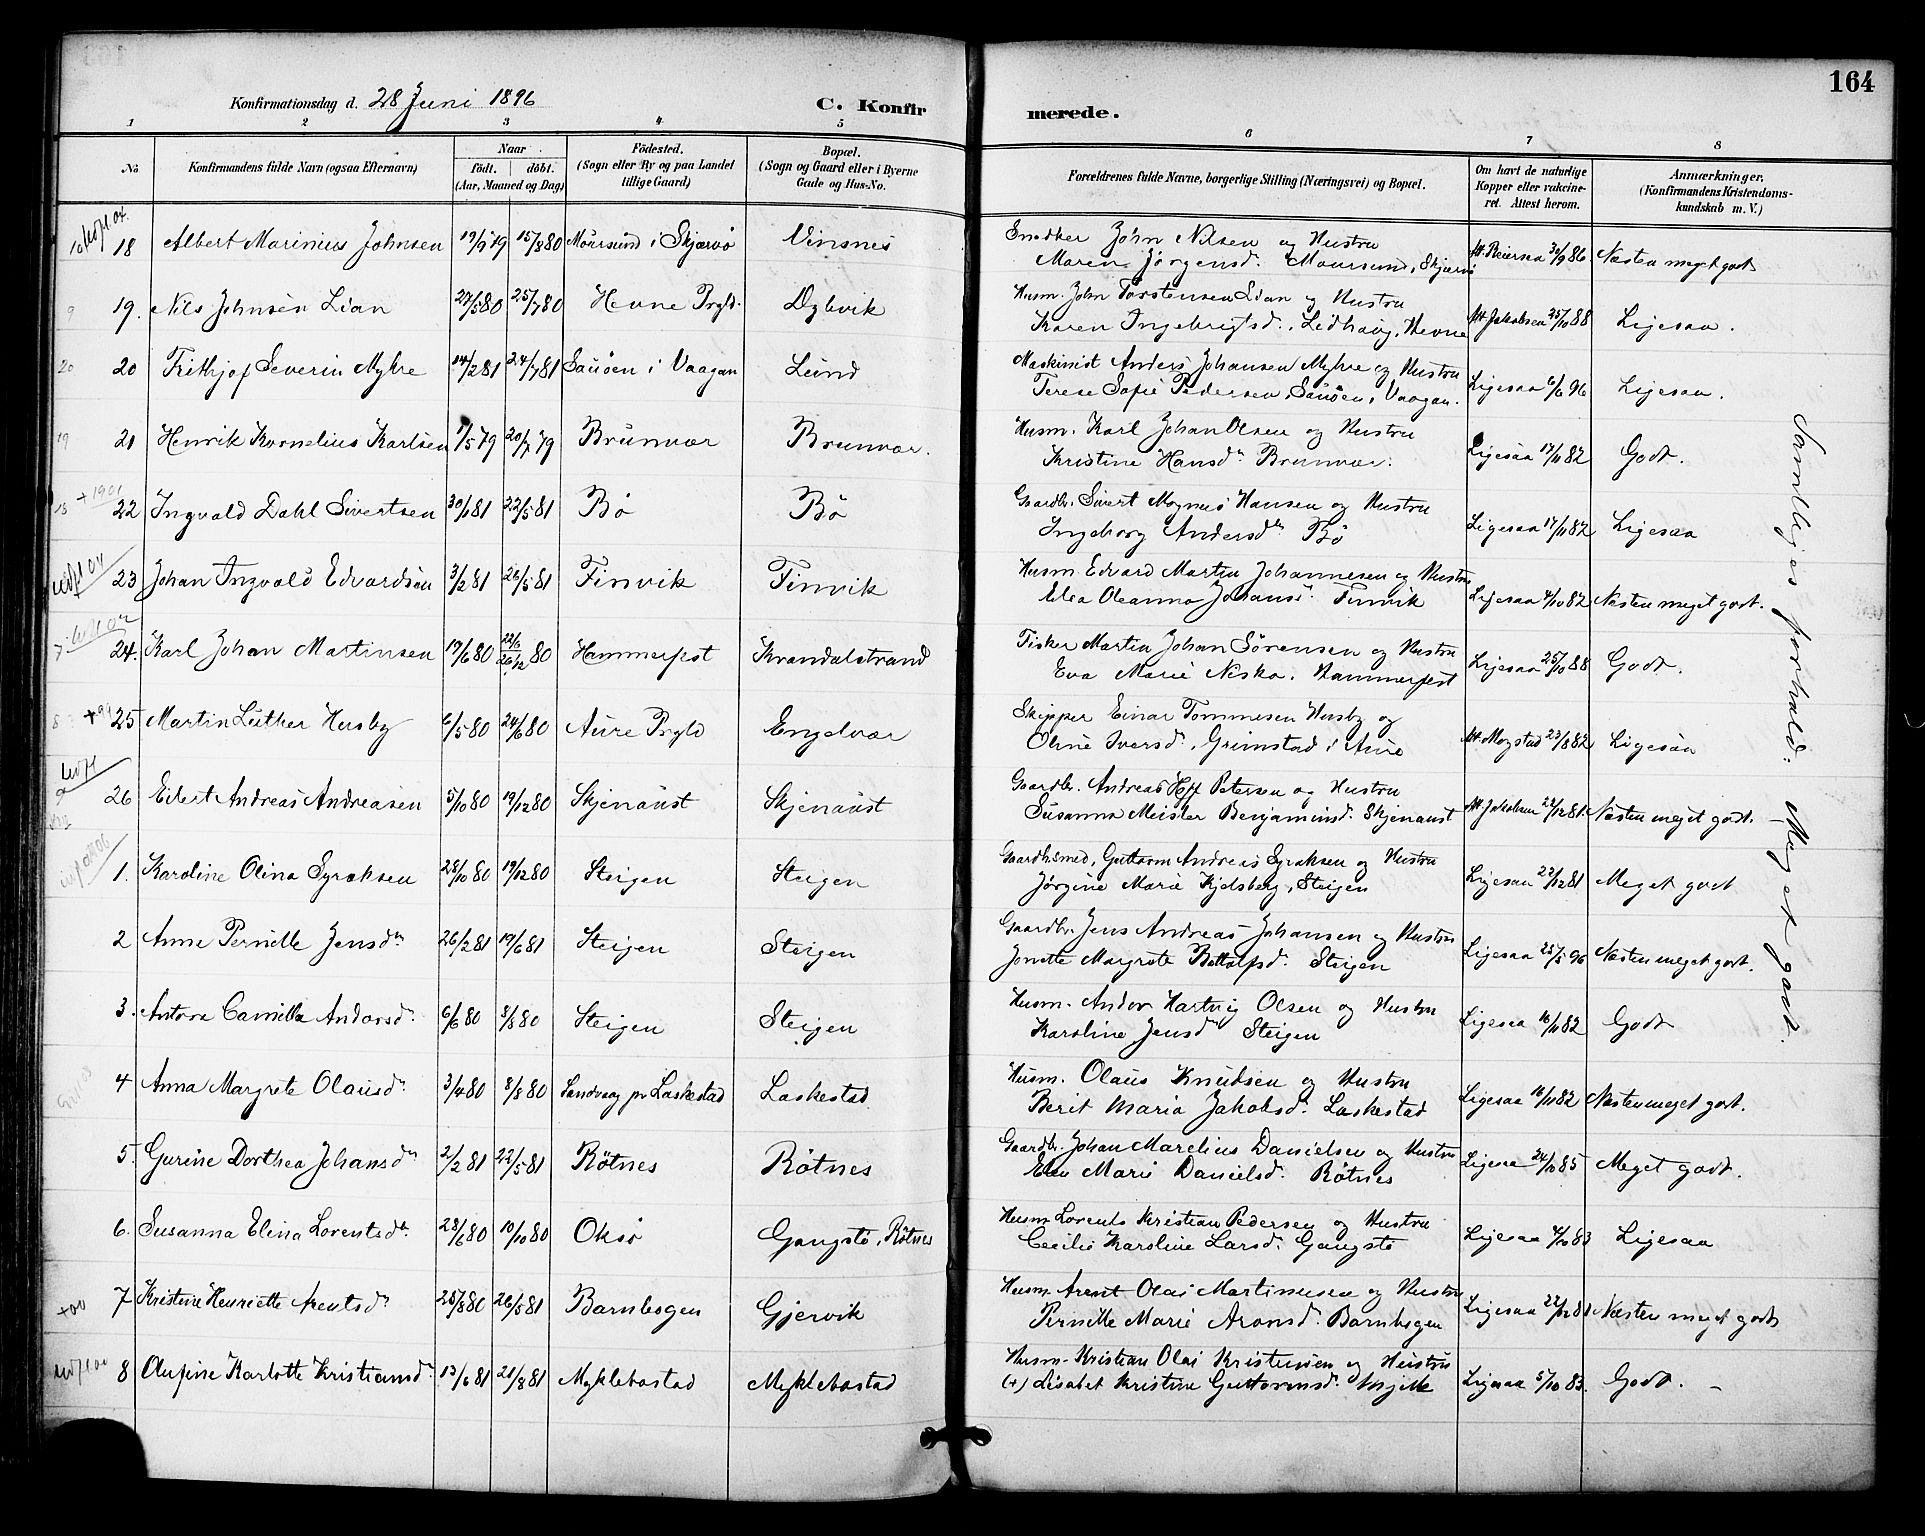 164
Konfirmationsdag d. 28 Juni 1896
C. Konfirmerede.
1 2 3 4 5 6 7 8
No
Konfirmandens fulde Navn (ogsaa Efternavn)
Naar födt. döbt. (Aar, Maaned og Dag)
Födested. (Sogn eller By og paa Landet tillige Gaard)
Bopæl. (Sogn og Gaard eller i Byerne Gade og Hus-No.
Forældrenes fulde Navne, borgerlige Stilling (Næringsvei) og Bopæl.
Om havt de naturlige Kopper eller vakcineret. Attest herom.
Anmærkninger. (Konfirmandens Kristendomskundskab m. V.)
18 Albert Marinius Johnsen 19/9 79 15/8 80 Maursund i Skjærvö Vinsnes Snedker John Nilsen og Hustru
Maren Jörgensd. Maursund, Skjærvö Att. Reiersen 30/9 86. Næsten meget godt
19. Nils Johnsen Lian 27/5 80 25/7 80 Hevne Prgld. Dybvik Husm. John Torstensen Lian og Hustru
Karen Ingebrigtsd., Lidhaug, Hevne Att. Jakobsen 25/10 88 Ligesaa.
20 Frithjof Severin Myhre 14/2 81 24/7 81 Sauöen i Vaagan Lund Maskinist Anders Johansen Myhre og Hustru
Terese Sofie Pedersen, Sauöen, Vaagan. Ligesaa 6/6 96 Ligesaa.
21 Henrik Kornelius Karlsen 1/5 79 20/7 79 Brunvær Brunvær. Husm. Karl Johan Olsen og Hustru
Kristine Hansd. Brunvær. Ligesaa 17/11 82 Godt.
+1901 22 Ingvald Dahl Sivertsen 30/1 81 22/5 81 Bö Bö Gaardbr. Sivert Magnus Hansen og Hustru
Ingeborg Andersd. Bö Ligesaa 17/11 82 Ligesaa
23 Johan Ingvald Edvardsen 3/2 81 26/5 81 Finvik Finvik Husm. Edvard Martin Johannesen og Hustru
Elea Oleanna Johansd. Finvik Ligesaa 4/10 82 Næsten meget godt.
24. Karl Johan Martinsen 17/6 80 22/6 26/12 80 Hammerfest Krandalstrand Fisker Martin Johan Sörensen og Hustru
Eva Marie Niska. Hammerfest Ligesaa 25/10 88 Godt.
25 Martin Luther Husby 6/5 80 24/6 80 Aure Prgld Engelvær Skipper Einar Tommesen Husby og
Oline Iversd., Grimstad i Aure Att. Mogstad 23/8 82 Ligesaa
26 Eilert Andreas Andreasen 5/10 80 19/12 80 Skjenaust Skjenaust Gaardbr. Andreas Hoff Petersen og Hustru
Susanna Meisler Benjaminsd. Skjenaust Att. Jakobsen 22/12 81. Næsten meget godt.
1. Karoline Olina Syraksen 28/10 80 19/12 80 Steigen Steigen Guttorm Andreas Syraksen og Hustru
Jörgine Marie Kjelsberg, Steigen Ligesaa 22/12 81 Meget godt
2 Anne Pernille Jensd. 26/2 81 19/6 81 Steigen Steigen Gaardbr. Jens Andreas Johansen og Hustru
Jonette Margrete Bottolfsd. Steigen Ligesaa 25/5 96 Næsten meget godt.
3. Antora Camilla Andorsd. 6/6 80 8/8 80 Steigen Steigen Husm. Andor Hartvig Olsen og Hustru
Karoline Jensd. Steigen Ligesaa 16/11 82 Godt
4 Anna Margrete Olausd. 3/4 80 8/8 80 Sandvaag pr Laskestad Laskestad Husm. Olaus Knudsen og Hustru
Berit Maria Jakobsd. Laskestad Ligesaa 16/11 82 Næsten meget godt.
5. Gurine Dorthea Johansd. 2/2 81 22/5 81 Rötnes Rötnes Gaardbr. Johan Marelius Danielsen og Hustru
Elen Marie Danielsd. Rötnes Ligesaa 24/10 85 Meget godt.
6. Susanna Elina Lorentsd. 28/6 80 10/10 80 Oksö Gangstö, Rötnes Husm. Lorents Kristian Pedersen og Hustru
Cecilie Karoline Larsd. Gangstö Ligesaa 4/10 83 Ligesaa
+00 7 Kristine Henriette Arentsd. 25/8 80 26/5 81 Barnbogen Gjervik Husm. Arent Olai Martinusen og Hustru
Pernille Marie Aronsd. Barnbogen Ligesaa 22/12 81 Næsten meget godt
8 Olufine Karlotte Kristiansd. 13/6 81 21/8 81 Myklebostad Myklebostad Husm. Kristian Olai Kristensen og Hustru
(+) Lisabet Kristine Guttormsd. Ligesaa 5/10 83. Godt.
Samtliges forhold: Meget godt.